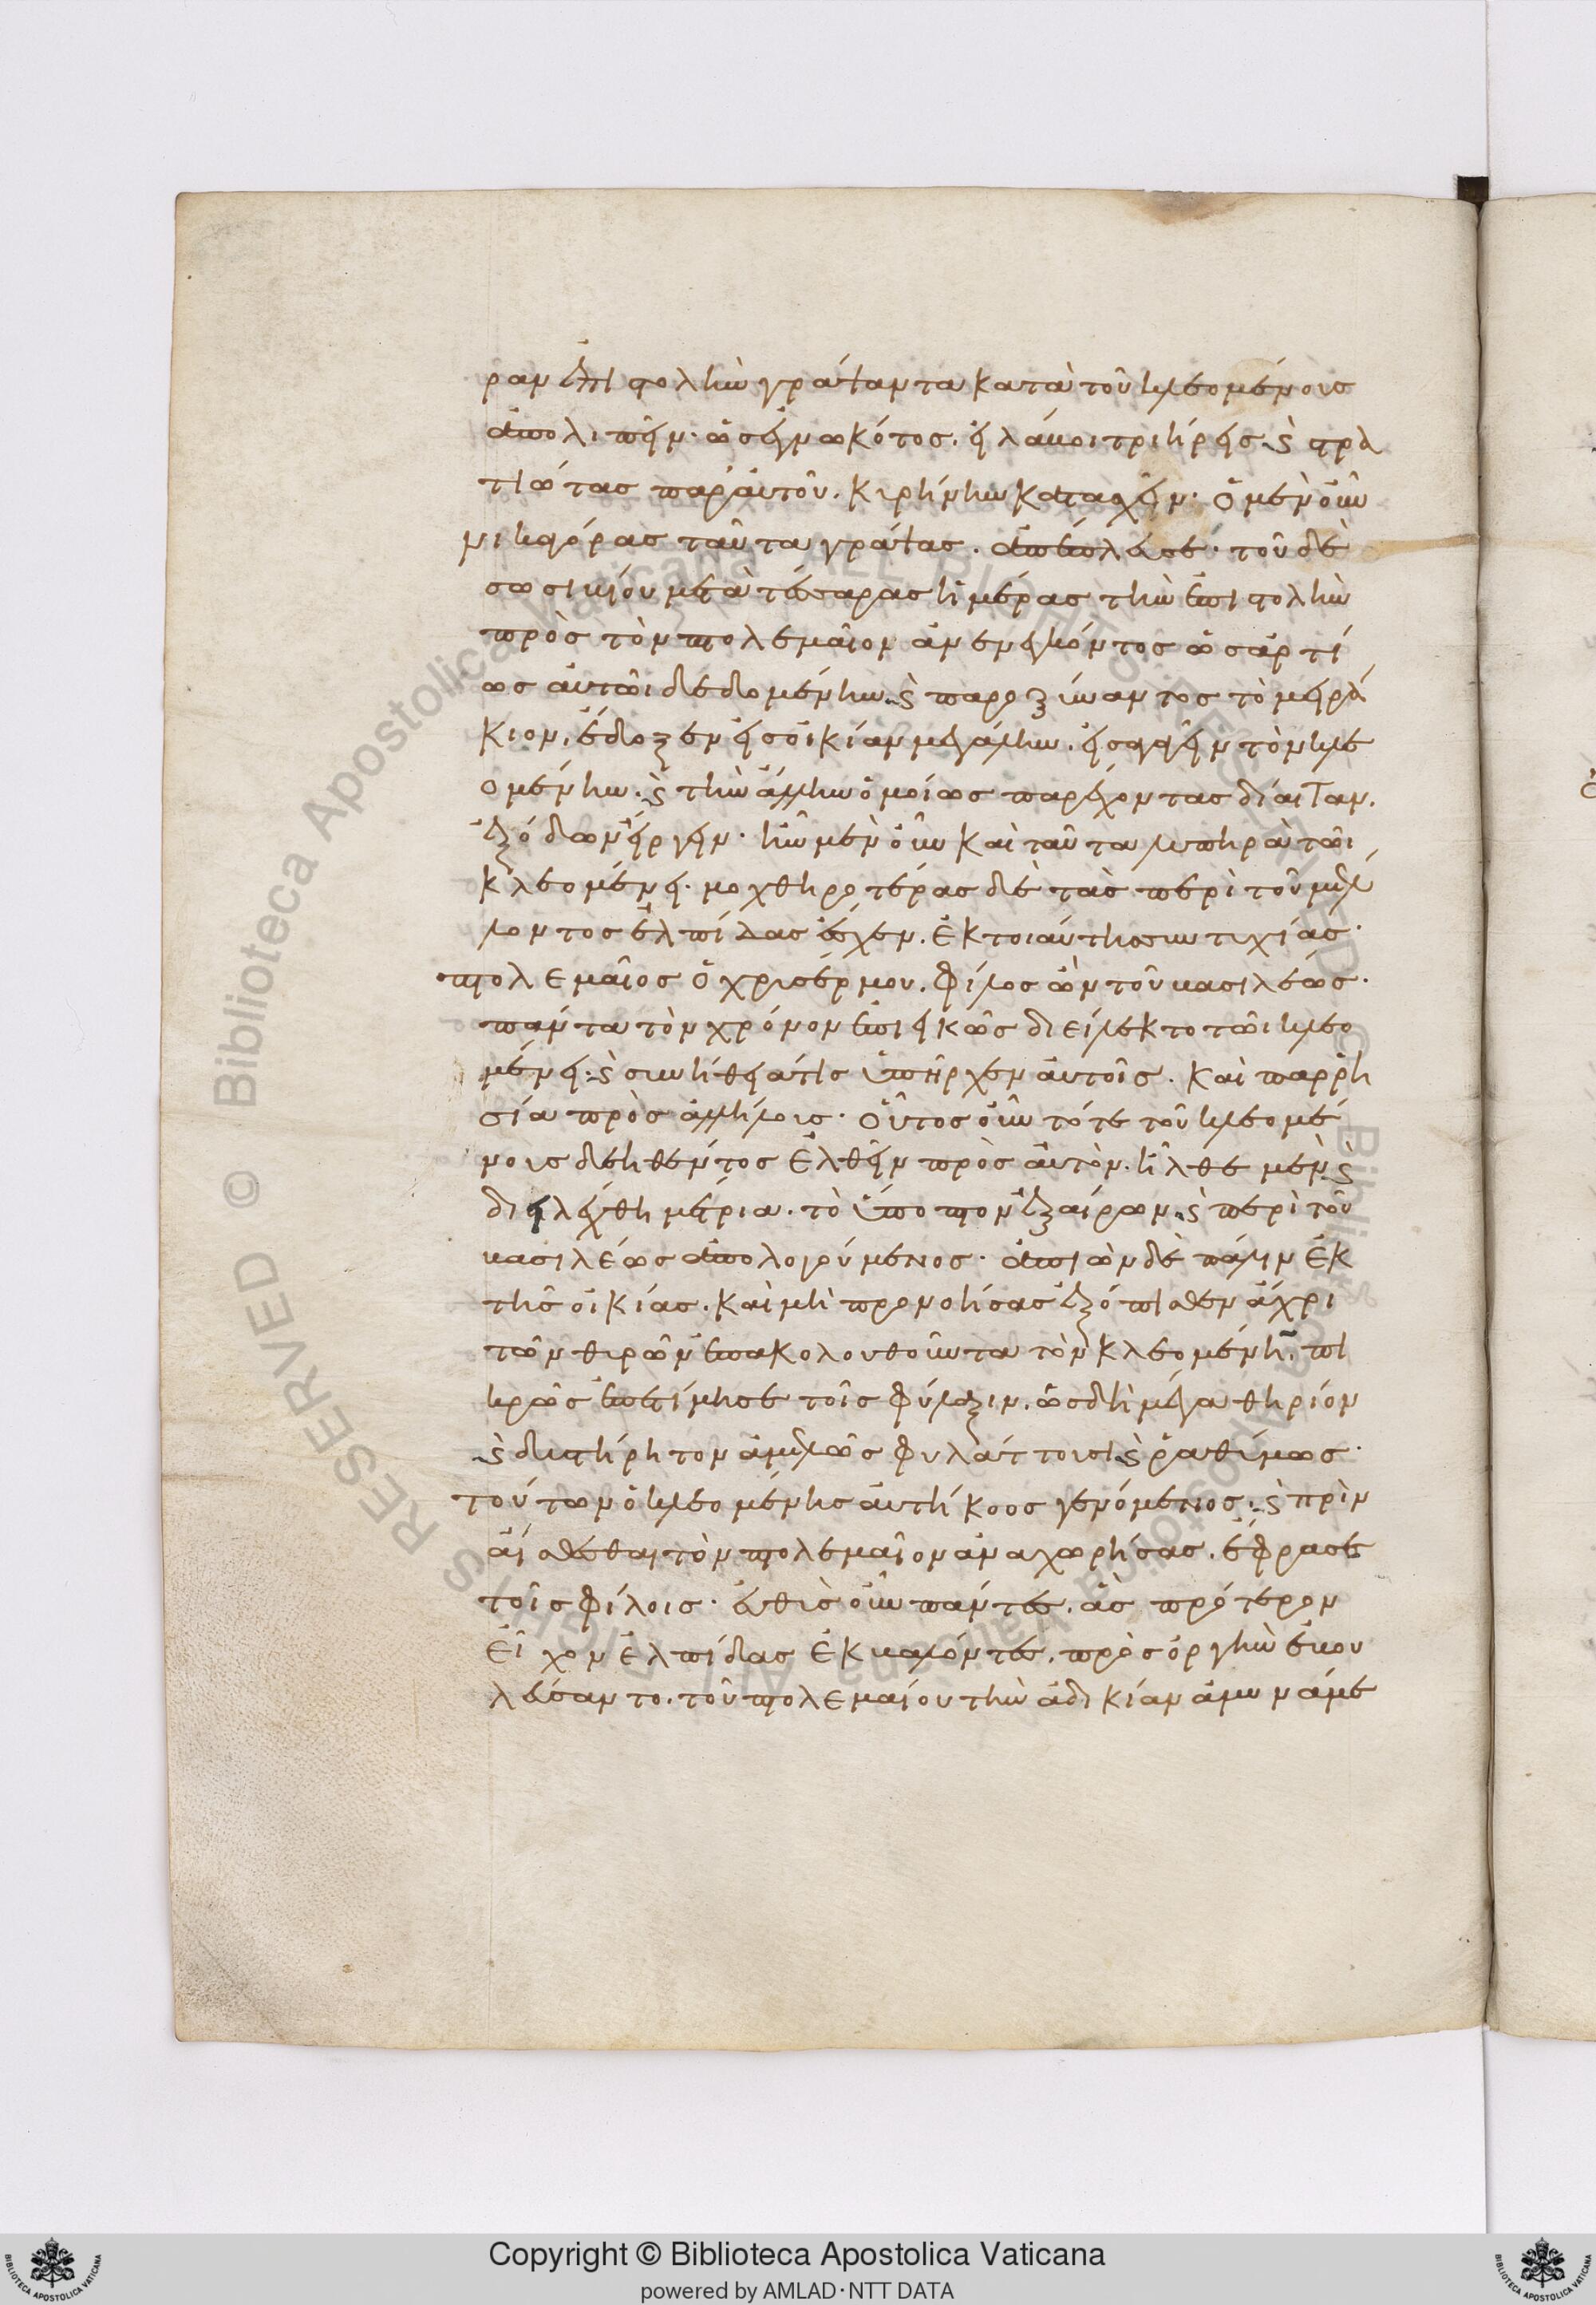 ραν ἐπιστολὴν γράψαντα κατὰ τοῦ κλεομένους
ἀπολιπεῖν· ὡς ἐγνωκότος, εἰ λάβοι τριήρεις καὶ στρα
τιώτας παρ' αὐτοῦ, κυρήνην κατασχεῖν· ὁ μὲν οὖν
νικαγόρας ταῦτα γράψας, ἀπέπλευσε· τοῦ δὲ
σωσιβίου μετὰ τέσσαρας ἡμέρας τὴν ἐπιστολὴν
πρὸς τὸν πτολεμαῖον ἀνενεγκόντος ὡς ἀρτί
ως αὐτῶι δεδομένην, καὶ παροξύναντος τὸ μειρά
κιον, ἔδοξεν εἰς οἰκίαν μεγάλην, εἰσαγαγεῖν τὸν κλε
ομένην, καὶ τὴν ἄλλην ὁμοίως παρέχοντας δίαιταν,
ἐξόδων εἴργειν· ἦν μὲν οὖν καὶ ταῦτα λυπηρὰ τῶι
κλεομένει· μοχθηροτέρας δὲ τὰς περὶ τοῦ μέλ
λοντος ἐλπίδας ἔσχεν, ἐκ τοιαύτης συντυχίας·
πτολεμαῖος ὁ χρυσέρμου, φίλος ὢν τοῦ βασιλέως·
πάντα τὸν χρόνον ἐπιεικῶς διείλεκτο τῶι κλεο
μένει· καὶ συνήθειά τις ὑπῆρχεν αὐτοῖς, καὶ παρρη
σία πρὸς ἀλλήλους· οὗτος οὖν τότε τοῦ κλεομέ
νους δεηθέντος ἐλθεῖν πρὸς αὐτόν, ἦλθε μὲν καὶ
διελέχθη μέτρια, τὸ ὕποπτον ἐξαίρων, καὶ περὶ τοῦ
βασιλέως ἀπολογούμενος· ἀπιὼν δὲ πάλιν ἐκ
τῆς οἰκίας, καὶ μὴ προνοήσας ἐξόπισθεν ἄχρι
τῶν θυρῶν ἐπακολουθοῦντα τὸν κλεομένην, πι
κρῶς ἐπετίμησε τοῖς φύλαξιν, ὡς δὴ μέγα θηρίον
καὶ δυστήρητον ἀμελῶς φυλάττουσι καὶ ῥαθύμως·
τούτων ὁ κλεομένης αὐτήκοος γενόμενος, καὶ πρὶν
αἰσθέσθαι τὸν πτολεμαῖον ἀναχωρήσας, ἔφρασε
τοῖς φίλοις· εὐθὺς οὖν πάντες, ἃς πρότερον
εἶχον ἐλπίδας ἐκβαλόντες, πρὸς ὀργὴν ἐβου
λεύσαντο, τοῦ πτολεμαίου τὴν ἀδικίαν ἀμυνάμε